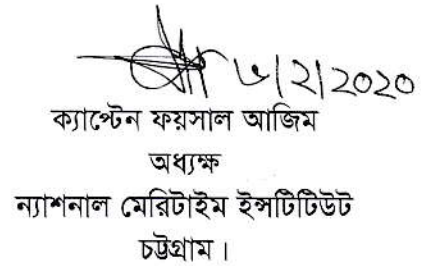 ৬/২/2020
ক্যাপ্টেন ফয়সাল আজিম
অধ্যক্ষ
ন্যাশনাল মেরিটাইম ইন্সটিটিউট
চট্টগ্রাম।